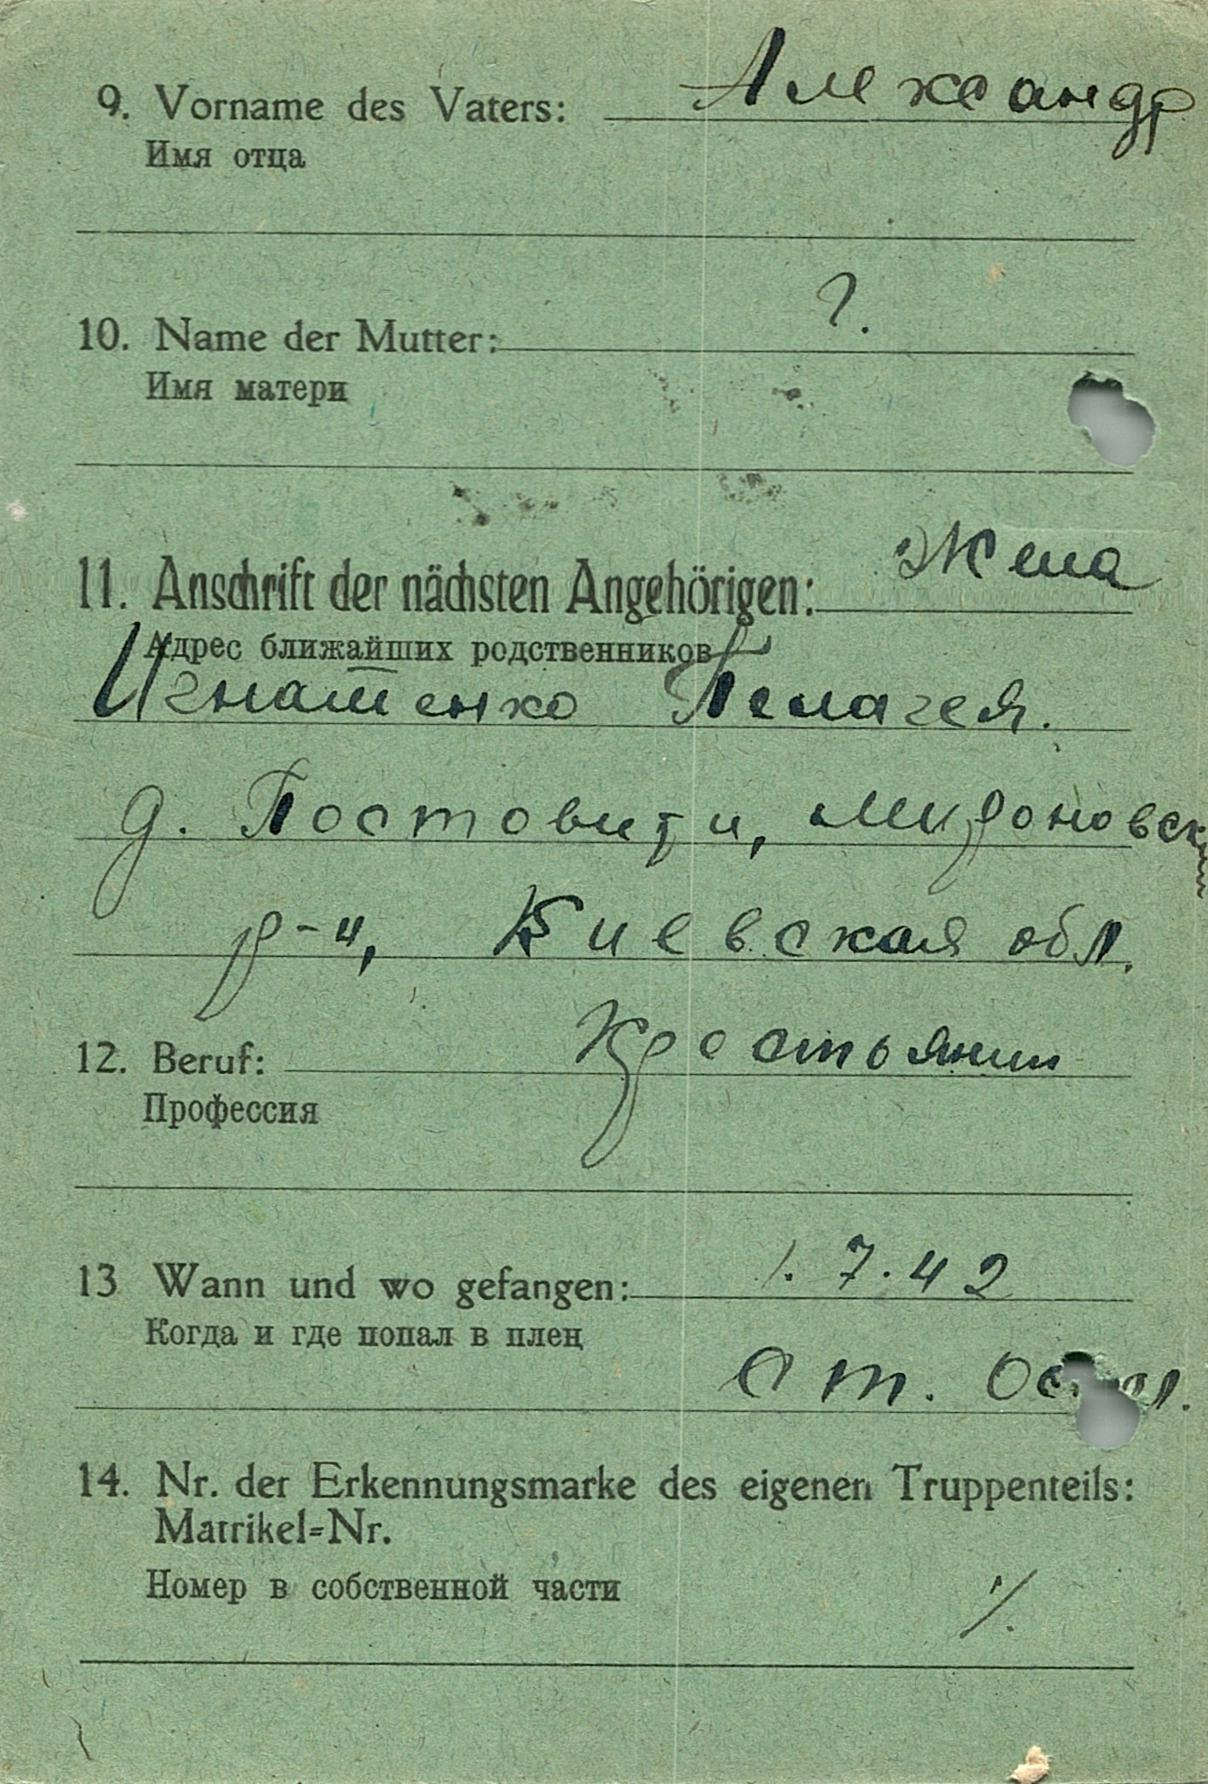 9. Vorname des Vaters: Александр
Имя отца
10. Name der Mutter: ?.
Имя матери
11. Anschrift der nächsten Angehörigen: Жена
Адрес ближайших родственников
Игнатенко Пелагея.
д. Постовити, Мироновский
р-н, Киевская обл.
12. Beruf: Крестьянин
Профессия
13 Wann und wo gefangen: 1.7.42
Когда и где попал в плен
Ст.
14. Nr. der Erkennungsmarke des eigenen Truppenteils:
Matrikel=Nr.
Номер в собственной части
./.